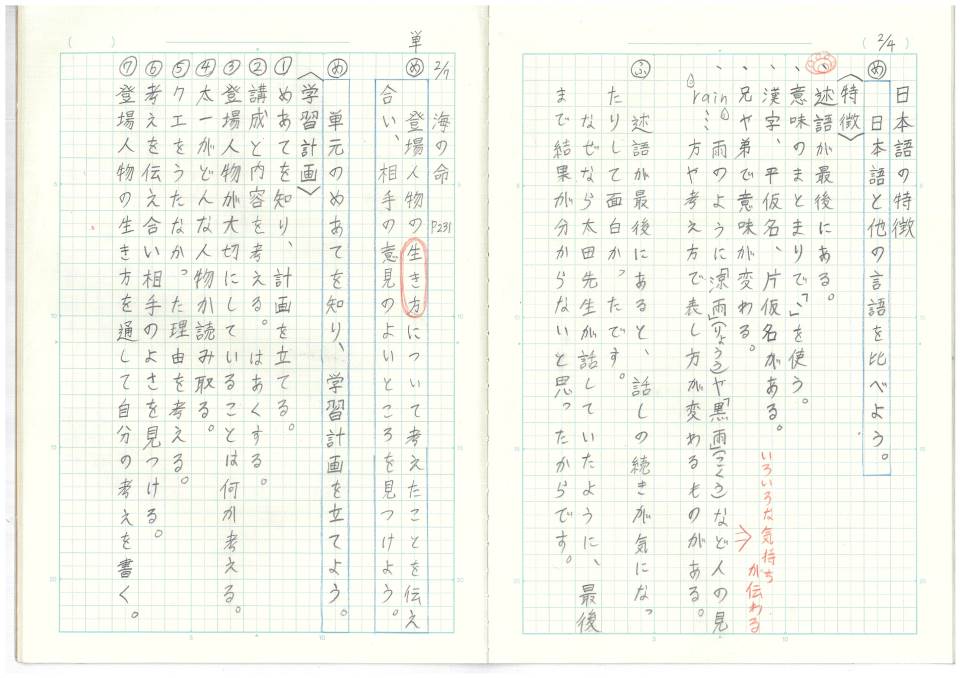 2/4
日本語の特徴
め 日本語と他の言語を比べよう。
〈特徴〉
、述語が最後にある。
、意味のまとまりで「、」を使う。
、漢字、平仮名、片仮名がある。
、兄や弟で意味が変わる。
、rain 雨のように「涼雨」(りょうう)や「黒雨」(こくう)など人の見
方や考え方で表し方が変わるものがある。
いろいろな気持ち
が伝わる
ふ 述語が最後にあると、話しの続きが気になっ
たりして面白かったです。
なぜなら太田先生が話していたように、最後
まで結果が分からないと思ったからです。
2/7 海の命 P231
単
め 登場人物の生き方について考えたことを伝え
合い、相手の意見のよいところを見つけよう。
め 単元のめあてを知り、学習計画を立てよう。
〈学習計画〉
① めあてを知り、計画を立てる。
② 講成と内容を考える。はあくする。
③ 登場人物が大切にしていることは何か考える。
④ 太一がどんな人物か読み取る。
⑤ クエをうたなかった理由を考える。
⑥ 考えを伝え合い相手のよさを見つける。
⑦ 登場人物の生き方を通して自分の考えを書く。